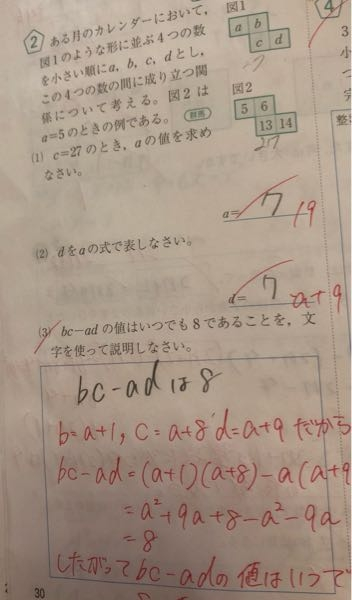 2 ある月のカレンダーにおいて,
図1のような形に並ぶ4つの数
を小さい順にa, b, c, dとし,
この4つの数の間に成り立つ関
係について考える。図2 は
a=5のときの例である。 群馬
図1
a b
c d
図2
5 6
13 14
27
4
(1) c=27のとき, aの値を求め
なさい。
a= 7 19
(2) dをaの式で表しなさい。
d= 7 a+9
(3) bc-adの値はいつでも8であることを, 文
字を使って説明しなさい。
bc-adは8
b=a+1, c=a+8 d=a+9 だから
bc-ad=(a+1)(a+8)-a(a+9
=a²+9a+8-a²-9a
=8
したがってbc-adの値はいつで
30